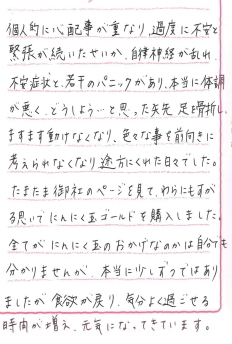 個人的に心配事が重なり、過度に不安と
緊張が続いたせいか、自律神経が乱れ
不安症状と、若干のパニックがあり、本当に体調
が悪く、どうしよう…と思った矢先 足を骨折し、
ますます動けなくなり、色々な事を前向きに
考えられなくなり 途方にくれた日々でした。
たまたま御社のページを見て、わらにもすが
る思いでにんにく玉ゴールドを購入しました。
全てがにんにく玉のおかげなのかは自分でも
分かりませんが、本当に少しずつではあり
ましたが 食欲が戻り、気分よく過ごせる
時間が増え、元気になってきています。